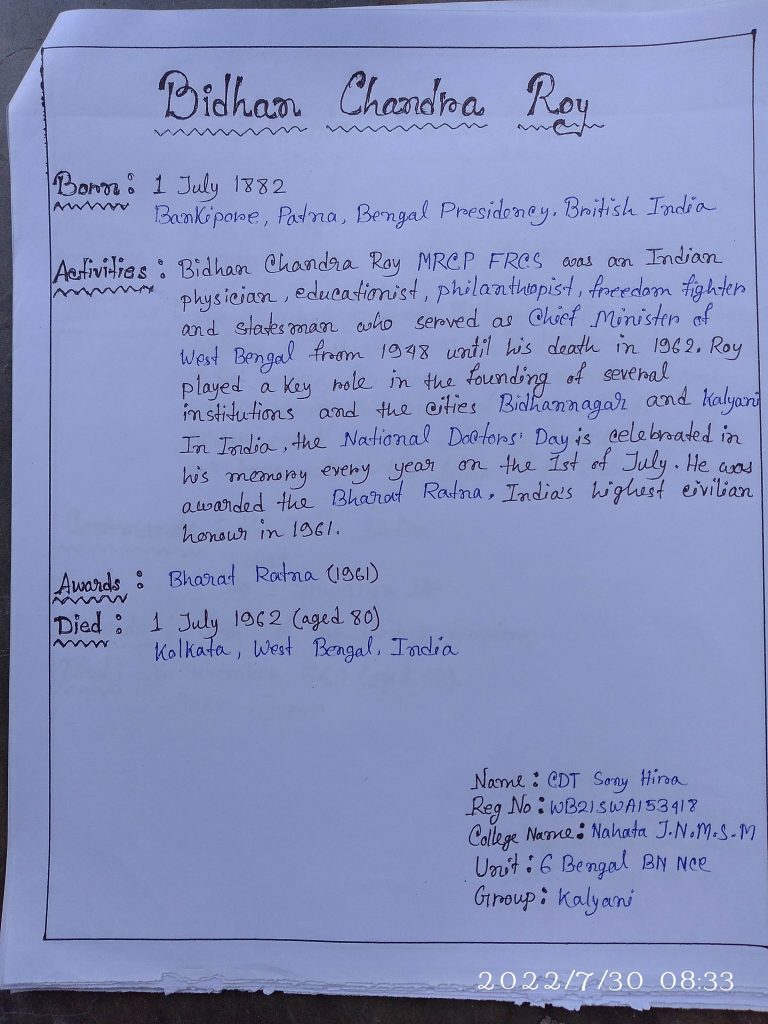 Bidhan Chandra Roy
Born : 1 July 1882
Bankipore, Patna, Bengal Presidency. British India
Activities : Bidhan Chandra Roy MRCP FRCS was an Indian
physician, educationist, philanthropist, freedom fighter
and statesman who served as Chief Minister of
West Bengal from 1948 until his death in 1962. Roy
played a key role in the founding of several
institutions and the cities Bidhannagar and Kalyani
In India, the National Doctors' Day is celebrated in
his memory every year on the 1st of July. He was
awarded the Bharat Ratna, India's highest civilian
honour in 1961.
Awards : Bharat Ratna (1961)
Died : 1 July 1962 (aged 80)
Kolkata, West Bengal, India
Name : CDT Sony Hira
Reg No : WB21SWA153418
College Name : Nahata J.N.M.S.M
Unit : 6 Bengal BN NCC
Group : Kalyani
2022/7/30 08:33